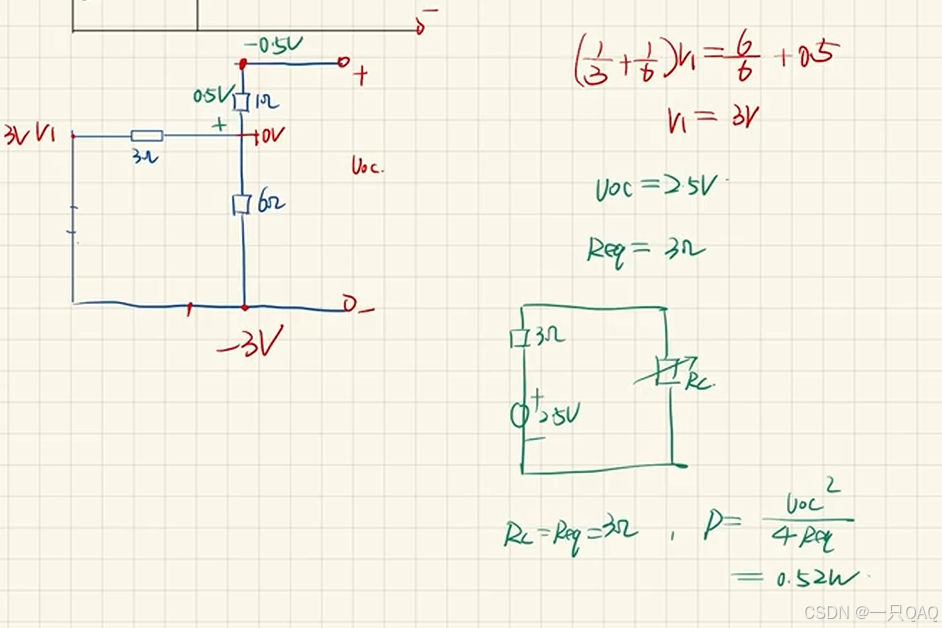 −
−0.5V
+
0.5V 1Ω
+
3V V1 0V
3Ω
Uoc.
6Ω
−
−3V
(1/3 + 1/6)V1 = 6/6 + 0.5
V1 = 3V
Uoc = 2.5V
Req = 3Ω
3Ω
RL
+
2.5V
−
RL = Req = 3Ω , P = Uoc² / 4Req
= 0.52W
CSDN @一只QAQ